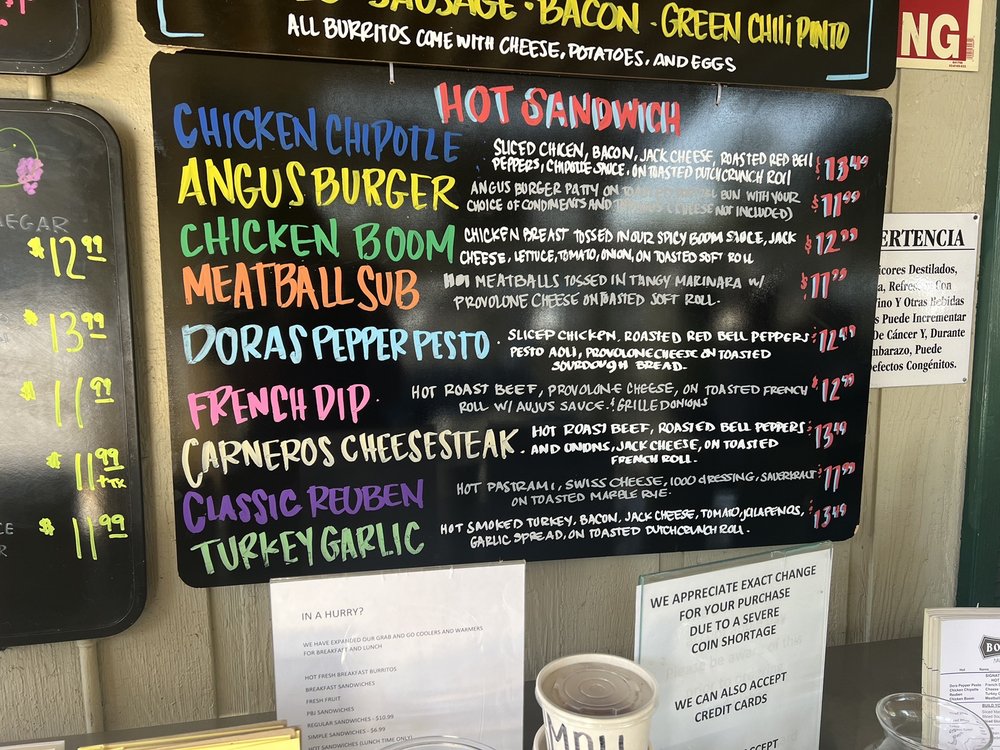 SAUSAGE · BACON · GREEN CHILI PINTO
ALL BURRITOS COME WITH CHEESE, POTATOES, AND EGGS
NG
HOT SANDWICH
CHICKEN CHIPOTLE
SLICED CHICEN, BACON, JACK CHEESE, ROASTED RED BELL
PEPPERS, CHIPOTLE SAUCE, ON TOASTED DUTCH CRUNCH ROLL
$13.49
ANGUS BURGER
ANGUS BURGER PATTY ON BUN WITH YOUR
CHOICE OF CONDIMENTS AND (CHEESE NOT INCLUDED)
$11.99
CHICKEN BOOM
CHICKEN BREAST TOSSED IN OUR SPICY BOOM SAUCE, JACK
CHEESE, LETTUCE, TOMATO, ONION, ON TOASTED SOFT ROLL
$12.99
MEATBALL SUB
HOT MEATBALLS TOSSED IN TANGY MARINARA W/
PROVOLONE CHEESE ON TOASTED SOFT ROLL.
$11.99
DORAS PEPPER PESTO
SLICED CHICKEN, ROASTED RED BELL PEPPERS
PESTO AOLI, PROVOLONE CHEESE ON TOASTED
SOURDOUGH BREAD.
$12.49
FRENCH DIP
HOT ROAST BEEF, PROVOLONE CHEESE, ON TOASTED FRENCH
ROLL W/ AUJUS SAUCE. & GRILLED ONIONS
$12.99
CARNEROS CHEESESTEAK.
HOT ROAST BEEF, ROASTED BELL PEPPERS
AND ONIONS, JACK CHEESE, ON TOASTED
FRENCH ROLL.
$13.49
CLASSIC REUBEN
HOT PASTRAMI, SWISS CHEESE, 1000 DRESSING, SAUERKRAUT
ON TOASTED MARBLE RYE.
$11.99
TURKEY GARLIC
HOT SMOKED TURKEY, BACON, JACK CHEESE, TOMATO, JALAPENOS,
GARLIC SPREAD, ON TOASTED DUTCH CRUNCH ROLL.
$13.49
EGAR
$12.99
$13.99
$11.99
$11.99
+TX
$11.99
ERTENCIA
icores Destilados,
a, Refrescos Con
ino Y Otras Bebidas
s Puede Incrementar
De Cáncer Y, Durante
mbarazo, Puede
efectos Congénitos.
IN A HURRY?
WE HAVE EXPANDED OUR GRAB AND GO COOLERS AND WARMERS
FOR BREAKFAST AND LUNCH
HOT FRESH BREAKFAST BURRITOS
BREAKFAST SANDWICHES
FRESH FRUIT
PBJ SANDWICHES
REGULAR SANDWICHES - $10.99
SIMPLE SANDWICHES - $6.99
HOT SANDWICHES (LUNCH TIME ONLY)
WE APPRECIATE EXACT CHANGE
FOR YOUR PURCHASE
DUE TO A SEVERE
COIN SHORTAGE
WE CAN ALSO ACCEPT
CREDIT CARDS
ACCEPT
BO
Dora Pepper Pesto
Chicken Chipotle
Reuben
Chicken Boom